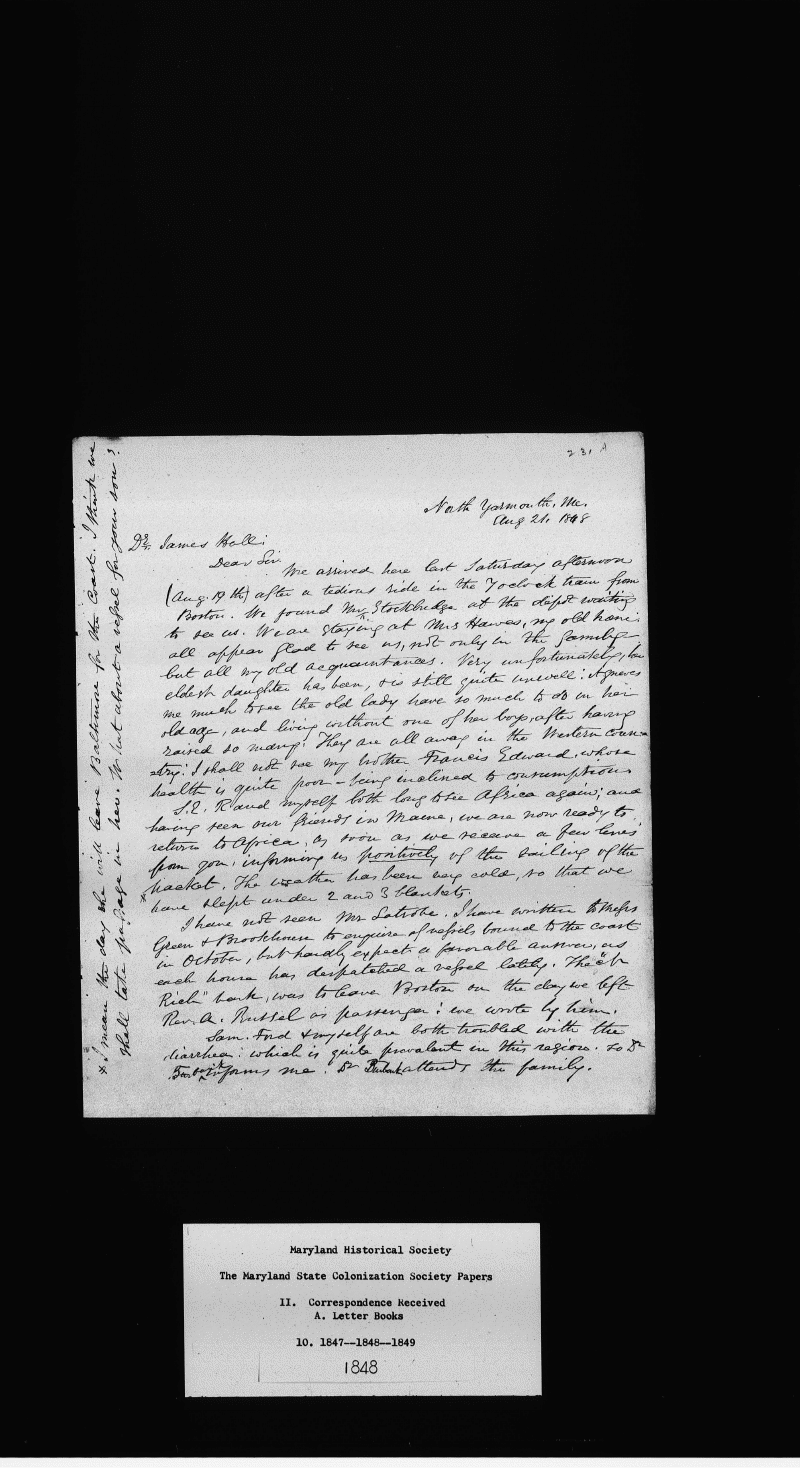 231
North Yarmouth, Me.
Aug 21, 1848
Dr. James Hall:
Dear Sir
We arrived here last Saturday afternoon
(Aug. 19 th) after a tedious ride in the 7 oclock train from
Boston. We found Mr Stockbridge at the depot waiting
to see us. We are staying at Mrs Hawes, my old home.
all appear glad to see us, not only in the family
but all my old acquaintances. Very unfortunately, her
eldest daughter has been, & is still quite unwell: it grieves
me much to see the old lady have so much to do in her
old age, and living without one of her boys, after having
raised so many. They are all away in the Western coun-
try. I shall not see my brother Francis Edward, whose
health is quite poor – being inclined to consumption.
S. F. R and myself both long to see Africa again; and
having seen our friends in Maine, we are now ready to
return to Africa, as soon as we receive a few lines
from you, informing us positively of the sailing of the
packet.* The weather has been very cold, so that we
have slept under 2 and 3 blankets.
I have not seen Mr Latrobe. I have written to Messrs
Green & Brookhouse to enquire of vessels bound to the coast
in October, but hardly expect a favorable answer, as
each house has despatched a vessel lately. The
Rich" bark, was to leave Boston on the day we left
Rev. A. Russel as passenger: we wrote by him.
Sam. Ford & myself are both troubled with the
diarrhea: which is quite prevalent in this region. so Dr
informs me. Dr attends the family.
* I mean the day she will leave Baltimore for the Coast. I think we
shall take passage in her. What about a vessel for your son?
Maryland Historical Society
The Maryland State Colonization Society Papers
II. Correspondence Received
A. Letter Books
10. 1847--1848--1849
1848